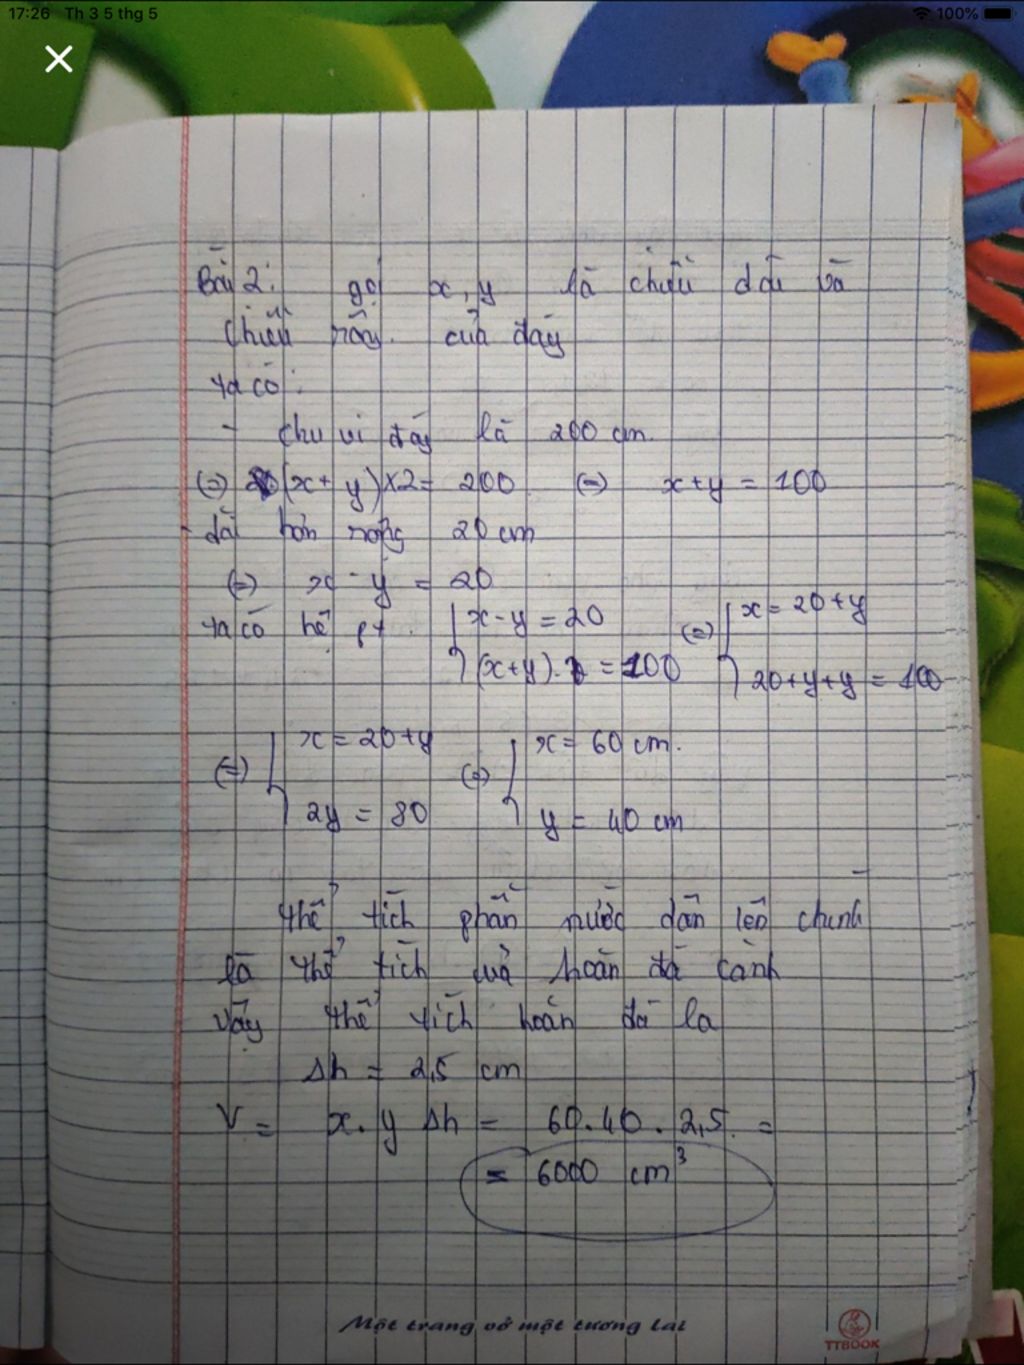 17:26 Th 3 5 thg 5
100%
Bài 2: gọi x, y là chiều dài và
chiều rộng của đáy
ta có:
- chu vi đáy là 200 cm.
(=) (x+y)x2= 200 (=) x+y = 100
- dài hơn rộng 20 cm
(=) x - y = 20
ta có hệ pt { x-y = 20 (=) { x = 20+y
(x+y). = 100 20+y+y = 100
(=) { x = 20+y (=) { x = 60 cm.
2y = 80 y = 40 cm
thể tích phần nước dân lên chính
là thể tích của hoàn đá cảnh
Vậy thể tích hoàn đá la
Δh = 2,5 cm
V = x.y Δh = 60.40.2,5 =
= 6000 cm³
Một trang vở một tương lai
TTBOOK